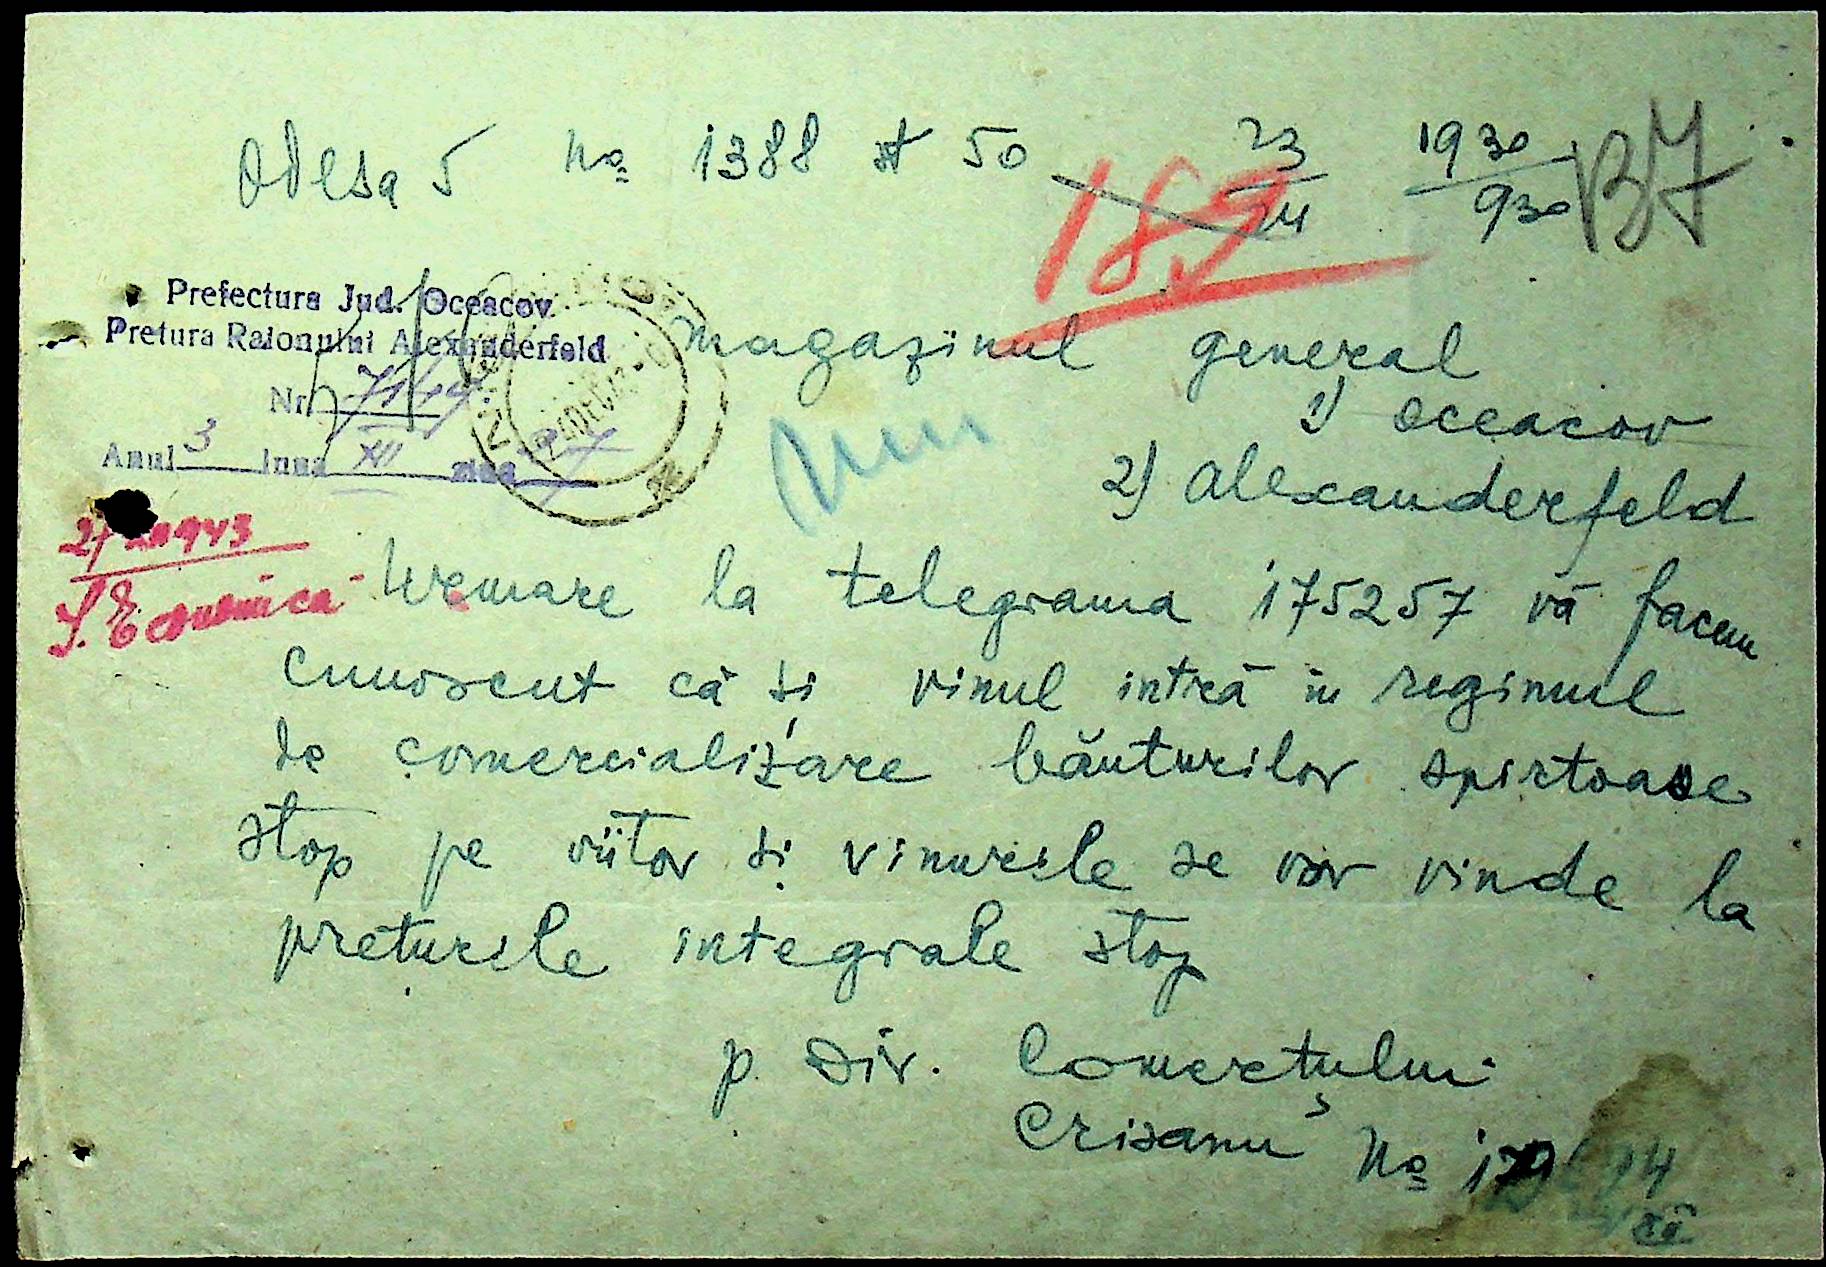 Odesa 5 No 1388 st 50 23/24 19 30/9 30 B7
189
Prefectura Jud. Oceacov
Pretura Raionului Alexanderfeld
Nr
Anul 3 luna XII ziua 27
magazinul general
1) Oceacov
2) Alexanderfeld
1943
S. Economica
Urmare la telegrama 175257 vă facem
cunoscut că și vinul intră in regimul
de comercializare băuturilor spirtoase
stop pe viitor si vinurile se vor vinde la
preturile integrale stop
p. Dir. Comerțului
Crisanu No